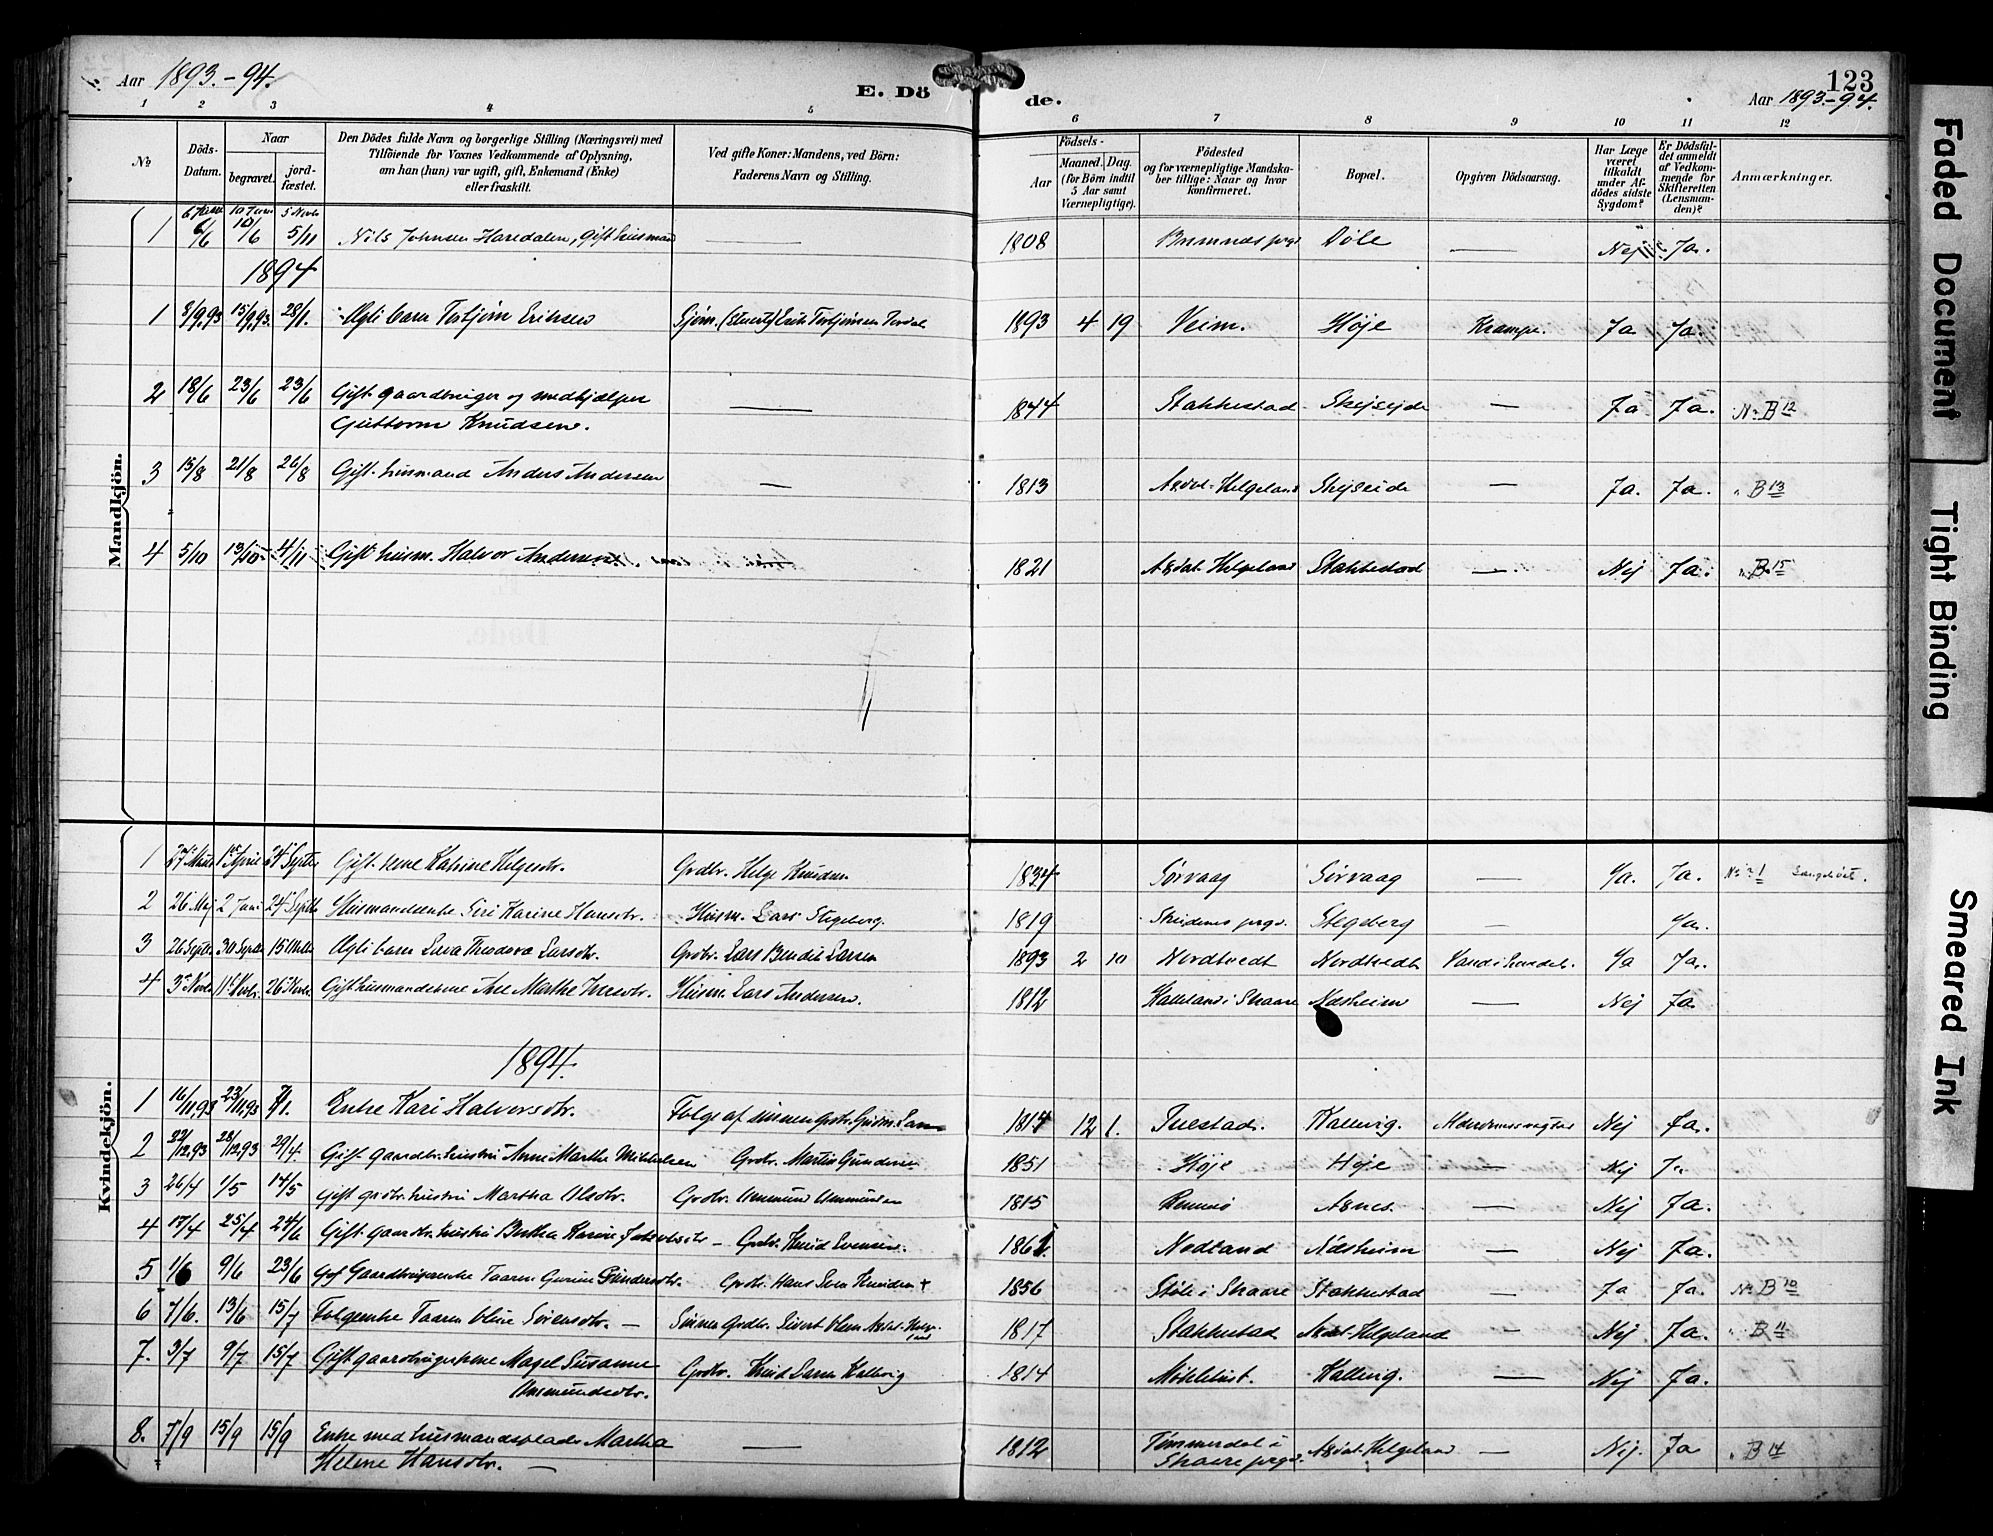 Aar 1893.-94.
E. Dö
de.
123
Aar 1893.-94.
1 2 3 4 5 6 7 8 9 10 11 12
No
Döds-
Datum.
Naar
begravet.
jord-
fæstet.
Den Dödes fulde Navn og borgerlige Stilling (Næringsvei) med
Tilföiende for Voxnes Vedkommende af Oplysning,
om han (hun) var ugift, gift, Enkemand (Enke)
eller fraskilt.
Ved gifte Koner: Mandens, ved Börn:
Faderens Navn og Stilling.
Födsels-
Aar
Maaned. Dag.
(for Börn indtil
5 Aar samt
Værnepligtige).
Födested
og for værnepligtige Mandska-
ber tillige: Naar og hvor
konfirmeret.
Bopæl.
Opgiven Dödsaarsag.
Har Læge
været
tilkaldt
under Af-
dödes sidste
Sygdom?
Er Dödsfal-
det anmeldt
af Vedkom-
mende for
Skifteretten
(Lensman-
den)?
Anmærkninger.
Mandkjön.
1 6/6 10/6 5/11 Nils Johnsen Haredalen, Gift husmand — 1808 — Nej Ja.
1894
1 8/9,93 15/9,93. 28/1. Ægte barn Torbjørn Eriksen Sjøm. (Stuert) Erik Torbjørnsen 1893 4 19 Veim. Høje Krampe. Ja Ja.
2 18/6 23/6 23/6 Gift gaardbruger og medhjælper — 1844 Stakkestad Skejseide — Ja Ja. No B 12
Guttorm Knudsen.
3 15/8 21/8 26/8 Gift husmand Anders Andersen — 1813 Aksdal-Helgeland Skejseide — Ja. Ja. " B 13
4 5/10 13/10 4/11 Gift husm. Halvor Andersen 1821 Aksdal-Helgeland Stakkestad — Nej Ja. " B 15
Kvindekjön.
1 27 1 April 24 Septbr Gift kone Katrine Helgesdtr. Grdbr. Helge Knudsen 1834 Sørvaag Sørvaag — Ja. Ja. No 1
2 26 Maj 2 Juni 24 Septbr Husmandsenke Siri Karine Hansdtr. Husm. Lars Stegeberg. 1819 Stegeberg — Ja.
3 26 Septbr 30 Septbr 15 Ægte barn Theodora Larsdtr. Grdbr. Lars Bendik Larsen 1893 2 10 Nordtvedt Nordtvedt Ja Ja.
4 3 Novbr 11 Novbr. 26 Novbr. Gift husmandskone Marthe Husm. Lars Andersen. 1812 i Skaare Nesheim — Nej Ja
1894.
1 16/11,93 23/11,93 7/1. Enke Kari Halvorsdtr. Folge af sønnen grdbr. 1814 12 1. Tuestad. Kallevig. Nej Ja.
2 22/12,93 28/12,93 29/4 Gift gaardbr.hustru Anne Marthe Mikkelsen Grdbr. Martin Gundersen 1851 Høje Høje — Nej Ja
3 26/4 1/5 14/5 Gift grdbr.hustru Martha Olsdtr. Grdbr. 1815 Agnes. — Nej Ja.
4 17/4 25/4 24/6 Gift gaardbr.hustru Bertha Karine Jakobsdtr — Grdbr. Knud Evensen. Nodland Nesheim — Nej Ja.
5 1/6 9/6 23/6 Gaardbrugerenke Taaren Gurine Gundersdtr. Grdbr. Hans Knudsen + 1856 Støle i Skaare Stakkestad — Ja Ja. No B 10
6 7/6. 13/6 15/7 Folgeenke Taaren Oline Sørensdtr. — Sønnen Grdbr. Sivert Olsen 1817 Stakkestad Aksdal-Helgeland — Nej Ja. " B 11
7. 3/7 9/7 15/7 Gift gaardbrugerkone Magel Susanne Grdbr. Knud Larsen Kallevig 1814 Kallevig. — Nej Ja.
Aasmundsdtr.
8. 7/9 15/9 15/9 Enke med husmandsplads Martha — 1812 Tømmerdal i Aksdal-Helgeland — Nej. Ja " B 14
Helene Hansdtr. — Skaare prgd.
Faded Document
Tight Binding
Smeared Ink